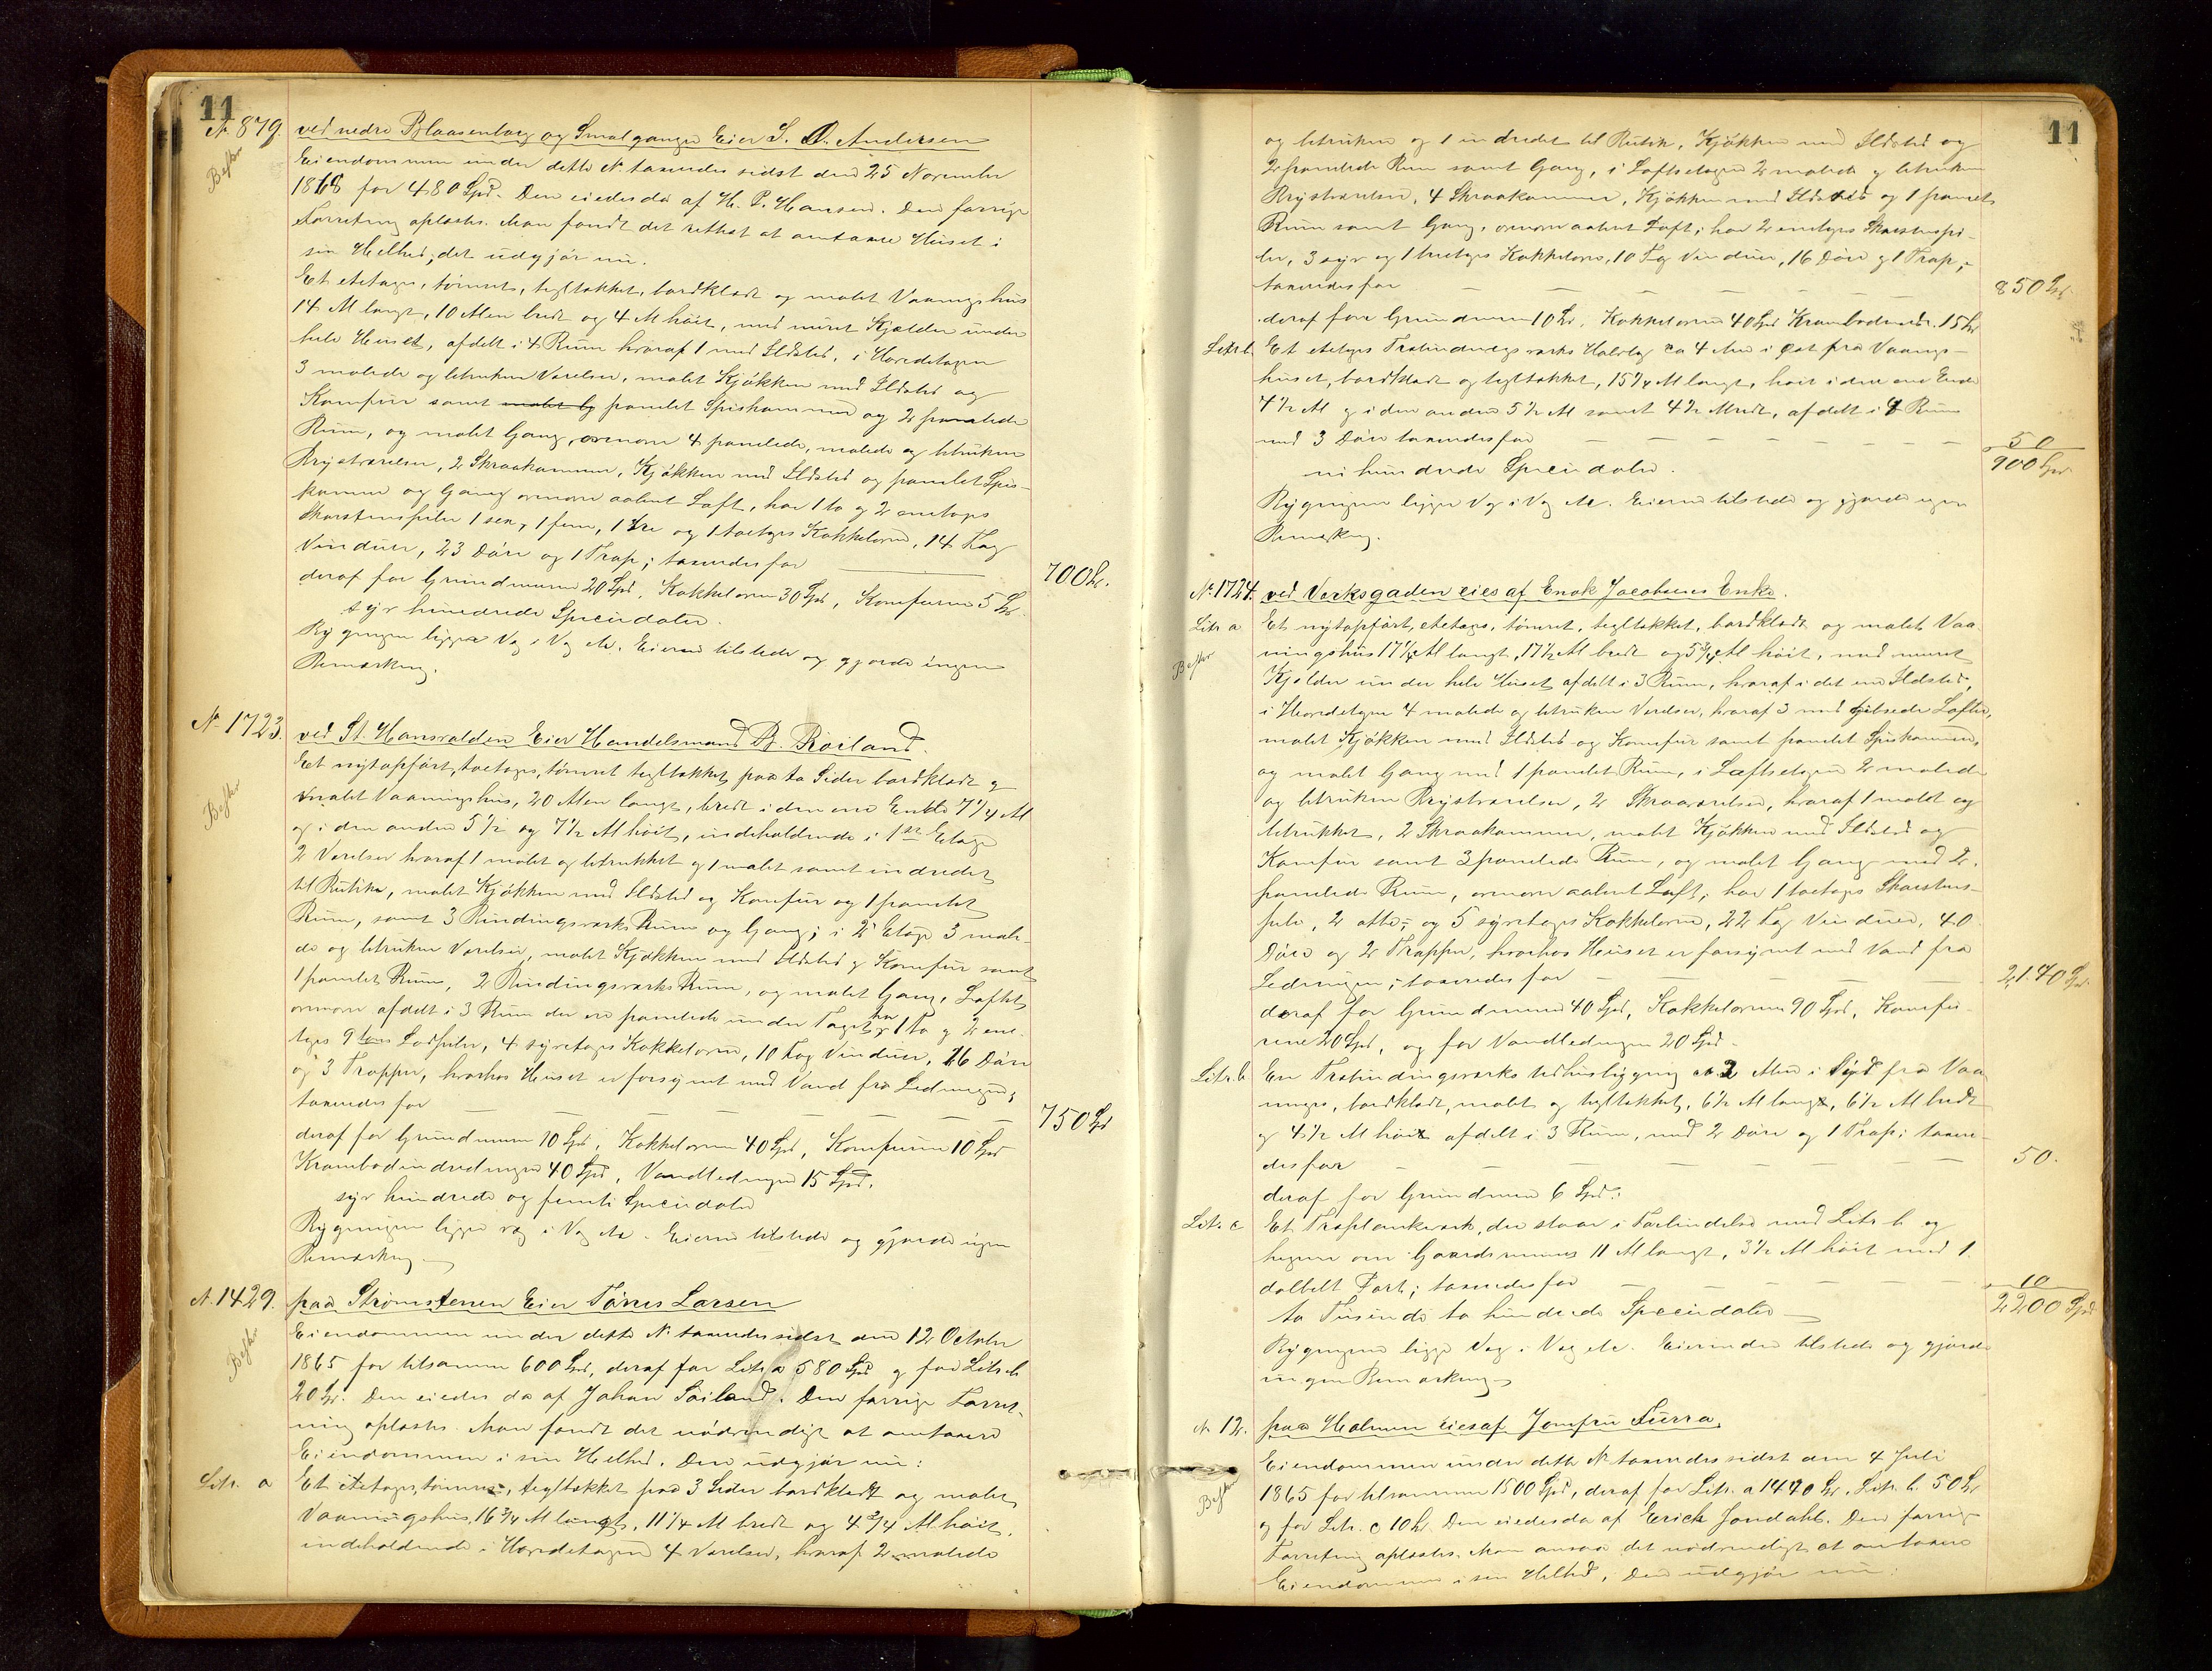 11
No 879.
ved nedre Blaasenborg og Smalgangen Eier S. A. Andersen
Eiendommen under dette No taxeredes sidst den 25 November
1868 for 480 Spd. Den eiedes da af H. P. Hansen. Den forrige
Forretning oplæstes. Man fandt det rettest at omtaxere Huset i
sin Helhed, det udgjør nu.
Et etetages, tømret, tegltækket, bordklædt og malet Vaaningshus
14 Al langt, 10 Alen bredt og 4 Al høit, med muret Kjælder under
hele Huset, afdelt i 4 Rum hvoraf 1 med Ildsted, i Hovedetagen
3 malede og betrukne Værelser, malet Kjøkken med Ildsted og
Komfur samt malet og panelet Spiskammer og 2 panelede
Rum, og malet Gang, ovenover 4 panelede, malede og betrukne
Brystværelser, 2 Skraakammer, Kjøkken med Ildsted og panelet Spis-
kammer og Gang ovenover aabent Loft, har 1 to og 2 enetages
Skorstenspiber 1 sex, 1 fem, 1 tre og 1 toetages Kakkelovne, 14 Fag
Vinduer, 23 Døre og 1 Trap; taxeredes for
700 Sp.
deraf for Grundmuren 20 Spd, Kakkelovne 30 Spd, Komfuren 5 Sp.
syv hundrede Speciedaler.
Bygningen ligger Væg i Væg etc. Eieren tilstede og gjorde ingen
Bemærkning.
No 1723.
ved St. Hansvolden Eier Handelsmand B. Roiland.
Et nytopført, toetages, tømret tegltækket paa to Sider bordklædt og
malet Vaaningshus, 20 Alen langt, bredt i den ene Ende 7 1/4 Al
og i den anden 5 1/2 og 7 1/2 Al høit, indeholdende i 1ste Etage
2 Værelser hvoraf 1 malet og betrukket og 1 malet samt indredet
til Butik, malet Kjøkken med Ildsted og Komfur og 1 panelet
Rum, samt 3 Bindingsværks Rum og Gang; i 2 Etage 3 male-
de og betrukne Værelser, malet Kjøkken med Ildsted og Komfur samt
1 panelet Rum, 2 Bindingsværks Rum, og malet Gang, Loftet
ovenover afdelt i 3 Rum der ere panelede under Taget, har 1 To og 2 ene-
tages Lodpiber, 4 syvetages Kakkelovne, 10 Fag Vinduer, 16 Døre
og 3 Trapper, hvorhos Huset er forsynet med Vand fra Ledningen;
taxeredes for
750 Sp
deraf for Grundmuren 10 Spd, Kakkelovne 40 Spd, Komfurene 10 Spd
Krambodindredningen 40 Spd, Vandledningen 15 Spd.
syv hundrede og femti Speciedaler
Bygningen ligger væg i Væg etc. Eieren tilstede og gjorde ingen
Bemærkning
No 1429.
paa Strømstenen Eier Tønnes Larsen
Eiendommen under dette No taxeredes sidst den 12 October
1865 for tilsammen 600 Spd, deraf for Litr. a 580 Spd og for Litr. b
20 Sp. Den eiedes da af Johan Soiland. Den forrige Forret-
ning oplæstes. Man fandt det nødvendigt at omtaxere
Eiendommen i sin Helhed. Den udgjør nu:
Litr. a
Et etetages, tømret, tegltækket paa 3 Sider bordklædt og malet
Vaaningshus, 16 3/4 Al langt, 11 1/4 Al bredt og 4 3/4 Al høit,
indeholdende i Hovedetagen 4 Værelser, hvoraf 2 malede
11
og betrukne og 1 indredet til Butik, Kjøkken med Ildsted og
2 panelede Rum samt Gang, i Loftsetagen 2 malede og betrukne
Brystværelser, 4 Skraakammer, Kjøkken med Ildsted og 1 panelet
Rum samt Gang, ovenover aabent Loft; har 2 enetages Skorstenspi-
ber, 3 syv og 1 treetages Kakkelovne, 10 Fag Vinduer, 16 Døre og 1 Trap;
taxeredes for
850 Sp.
deraf for Grundmuren 10 Sp. Kakkelovne 40 Spd Krambodindr. 15 Sp
Litr. b
Et etetages Træbindingsværks Halvtag ca 4 Alen i Øst fra Vaanings-
huset, bordklædt og tegltækket, 15 1/4 Al langt, høit i den ene Ende
4 1/2 Al og i den anden 5 1/2 Al samt 4 1/2 Al bredt, afdelt i 4 Rum
med 3 Døre taxeredes for
50
900 Spd
ni hundrede Speciedaler.
Bygningen ligger Væg i Væg etc. Eieren tilstede og gjorde ingen
Bemærkng.
No 1724.
ved Verksgaden eies af Enok Jacobsens Enke.
Litr. a
Et nytopført, etetages, tømret, tegltækket, bordklædt og malet Vaa-
ningshus 17 1/4 Al langt, 17 1/2 Al bredt og 5 3/4 Al høit, med muret
Kjælder under hele Huset afdelt i 3 Rum, hvoraf i det ene Ildsted,
i Hovedetagen 4 malede og betrukne Værelser, hvoraf 3 med gibsede Lofter,
malet Kjøkken med Ildsted og Komfur samt panelet Spiskammer,
og malet Gang med 1 panelet Rum, i Loftsetagen 2 malede
og betrukne Brystværelser, 2 Skraaværelser, hvoraf 1 malet og
betrukket, 2 Skraakammer, malet Kjøkken med Ildsted og
Komfur samt 3 panelede Rum, og malet Gang med 2.
panelede Rum, ovenover aabent Loft; har 1 toetages Skorstens-
pibe, 2 otte- og 5 syvetages Kakkelovne, 22 Fag Vinduer, 40
Døre og 2 Trapper, hvorhos Huset er forsynet med Vand fra
Ledningen; taxeredes for
2140 Spd.
deraf for Grundmuren 40 Spd, Kakkelovne 90 Spd, Komfu-
rene 20 Spd, og for Vandledningen 20 Spd.
Litr. b
En Træbindingsværks Udhusbygning ca 2 Alen i Syd fra Vaa-
ningen, bordklædt, malet og tegltækket, 6 1/2 Al langt, 6 1/2 Al bredt
og 4 1/2 Al høit afdelt i 3 Rum, med 2 Døre og 1 Trap; taxere-
des for
50.
deraf for Grundmuren 6 Spd.
Litr. c
Et Træplankeværk, der staar i Forbindelse med Litr. b og
hegner om Gaardsrummet 11 Al langt, 3 1/2 Al høit med 1.
dobbelt Port; taxeredes for
10
2200 Spd
to Tusinde to hundrede Speciedaler
Bygningen ligge Væg i Væg etc. Eierinden tilstede og gjorde
ingen Bemærkning
No 12.
paa Holmen eies af Jomfru Surra.
Eiendommen under dette No taxeredes sidst den 4 Juli
1865 for tilsammen 1500 Spd, deraf for Litr. a 1440 Sp, Litr. b. 50 Sp
og for Litr. c 10 Sp. Den eiedes da af Erick Jondahl. Den forrige
Forretning oplæstes. Man ansaa det nødvendigt at omtaxere
Eiendommen i sin Helhed, den udgjør nu: